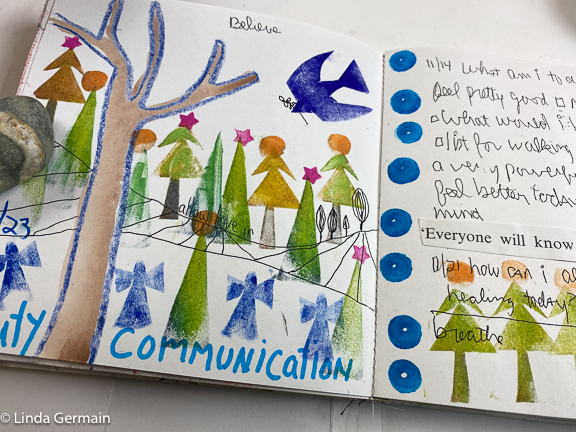 Believe
always love in
/23
uty
Communication
11/14 What am i to a
feel pretty good
what would i
for walking
a very powerf
feel better today
mind
"Everyone will know
how can i al
healing today?
breathe
© Linda Germain